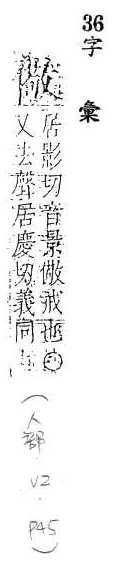 36
字彙
居影切音景儆戒也
又去聲居慶切義同
(人部
V2
P45)